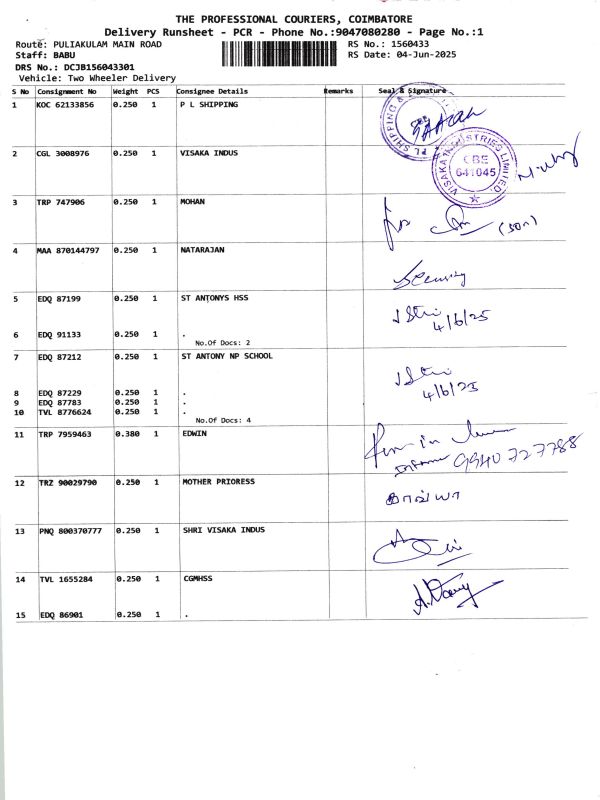 THE PROFESSIONAL COURIERS, COIMBATORE
Delivery Runsheet - PCR - Phone No.:9047080280 - Page No.:1
Route: PULIAKULAM MAIN ROAD RS No.: 1560433
Staff: BABU RS Date: 04-Jun-2025
DRS No.: DCJB156043301
Vehicle: Two Wheeler Delivery
S No Consignment No Weight PCS Consignee Details Remarks Seal & Signature
1 KOC 62133856 0.250 1 P L SHIPPING
PL SHIPPING &
2 CGL 3008976 0.250 1 VISAKA INDUS
VISAKA INDUSTRIES LIMITED.
CBE
641045
3 TRP 747906 0.250 1 MOHAN
for (son)
4 MAA 870144797 0.250 1 NATARAJAN
Security
5 EDQ 87199 0.250 1 ST ANTONYS HSS
4/6/25
6 EDQ 91133 0.250 1 .
No.Of Docs: 2
7 EDQ 87212 0.250 1 ST ANTONY NP SCHOOL
4/6/25
8 EDQ 87229 0.250 1 .
9 EDQ 87783 0.250 1 .
10 TVL 8776624 0.250 1 .
No.Of Docs: 4
11 TRP 7959463 0.380 1 EDWIN
9940 727788
12 TRZ 90029790 0.250 1 MOTHER PRIORESS
காவ்யா
13 PNQ 800370777 0.250 1 SHRI VISAKA INDUS
14 TVL 1655284 0.250 1 CGMHSS
15 EDQ 86901 0.250 1 .